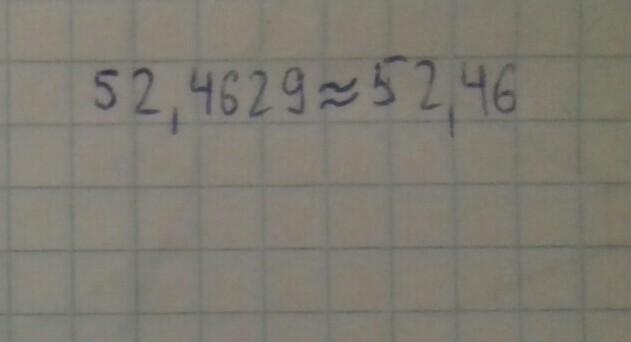 52,4629≈52,46